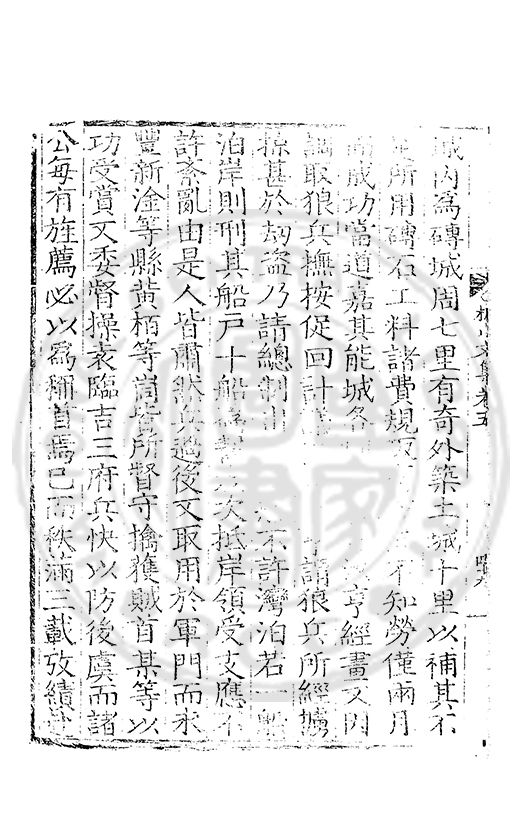 城内為磚城周七里有奇外築土城十里以補其不
足所用磚石工料諸費規 不知勞僅兩月
而成功當道嘉其能城各 亨經畫又因
調取狼兵撫按促回計 謂狼兵所經擄
掠甚於刼盜乃請總制出 不許灣泊若一船
泊岸則刑其船户十船 次抵岸領受支應不
許紊亂由是人皆肅然兵過後又取用於軍門而永
豐新淦等縣黄栢等峝皆所督守擒獲賊首某等以
功受賞又委督操袁臨吉三府兵快以防後虞而諸
公每有旌薦必以為稱首焉已而秩滿三載攷績
文集卷五